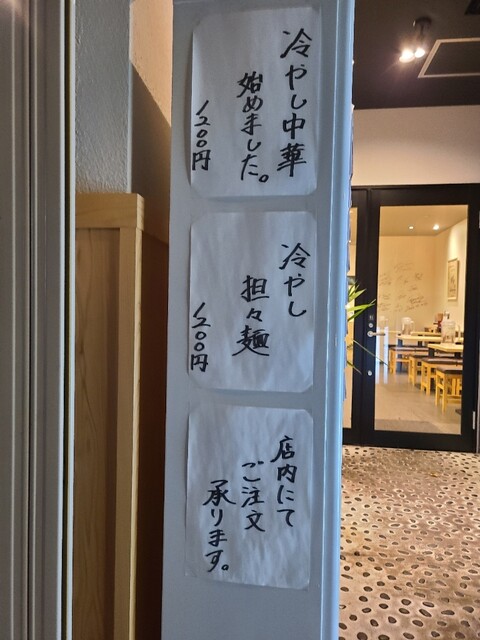 冷やし中華
始めました。
1200円
冷やし
担々麺
1200円
店内にて
ご注文
承ります。